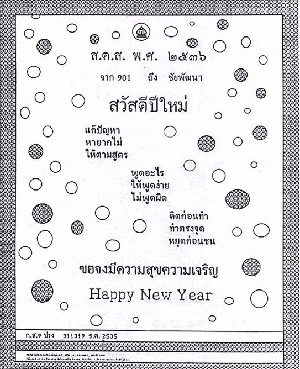 ส.ค.ส. พ.ศ. ๒๕๓๖
จาก 901 ถึง ชัยพัฒนา
สวัสดีปีใหม่
แก้ปัญหา
หายากไม่
ให้ตามสูตร
พูดอะไร
ให้พูดง่าย
ไม่พูดผิด
คิดก่อนทำ
ทำตรงจุด
หยุดก่อนชน
ขอจงมีความสุขความเจริญ
Happy New Year
ก.ส. 9 ปรุง ธ.ค. 2535